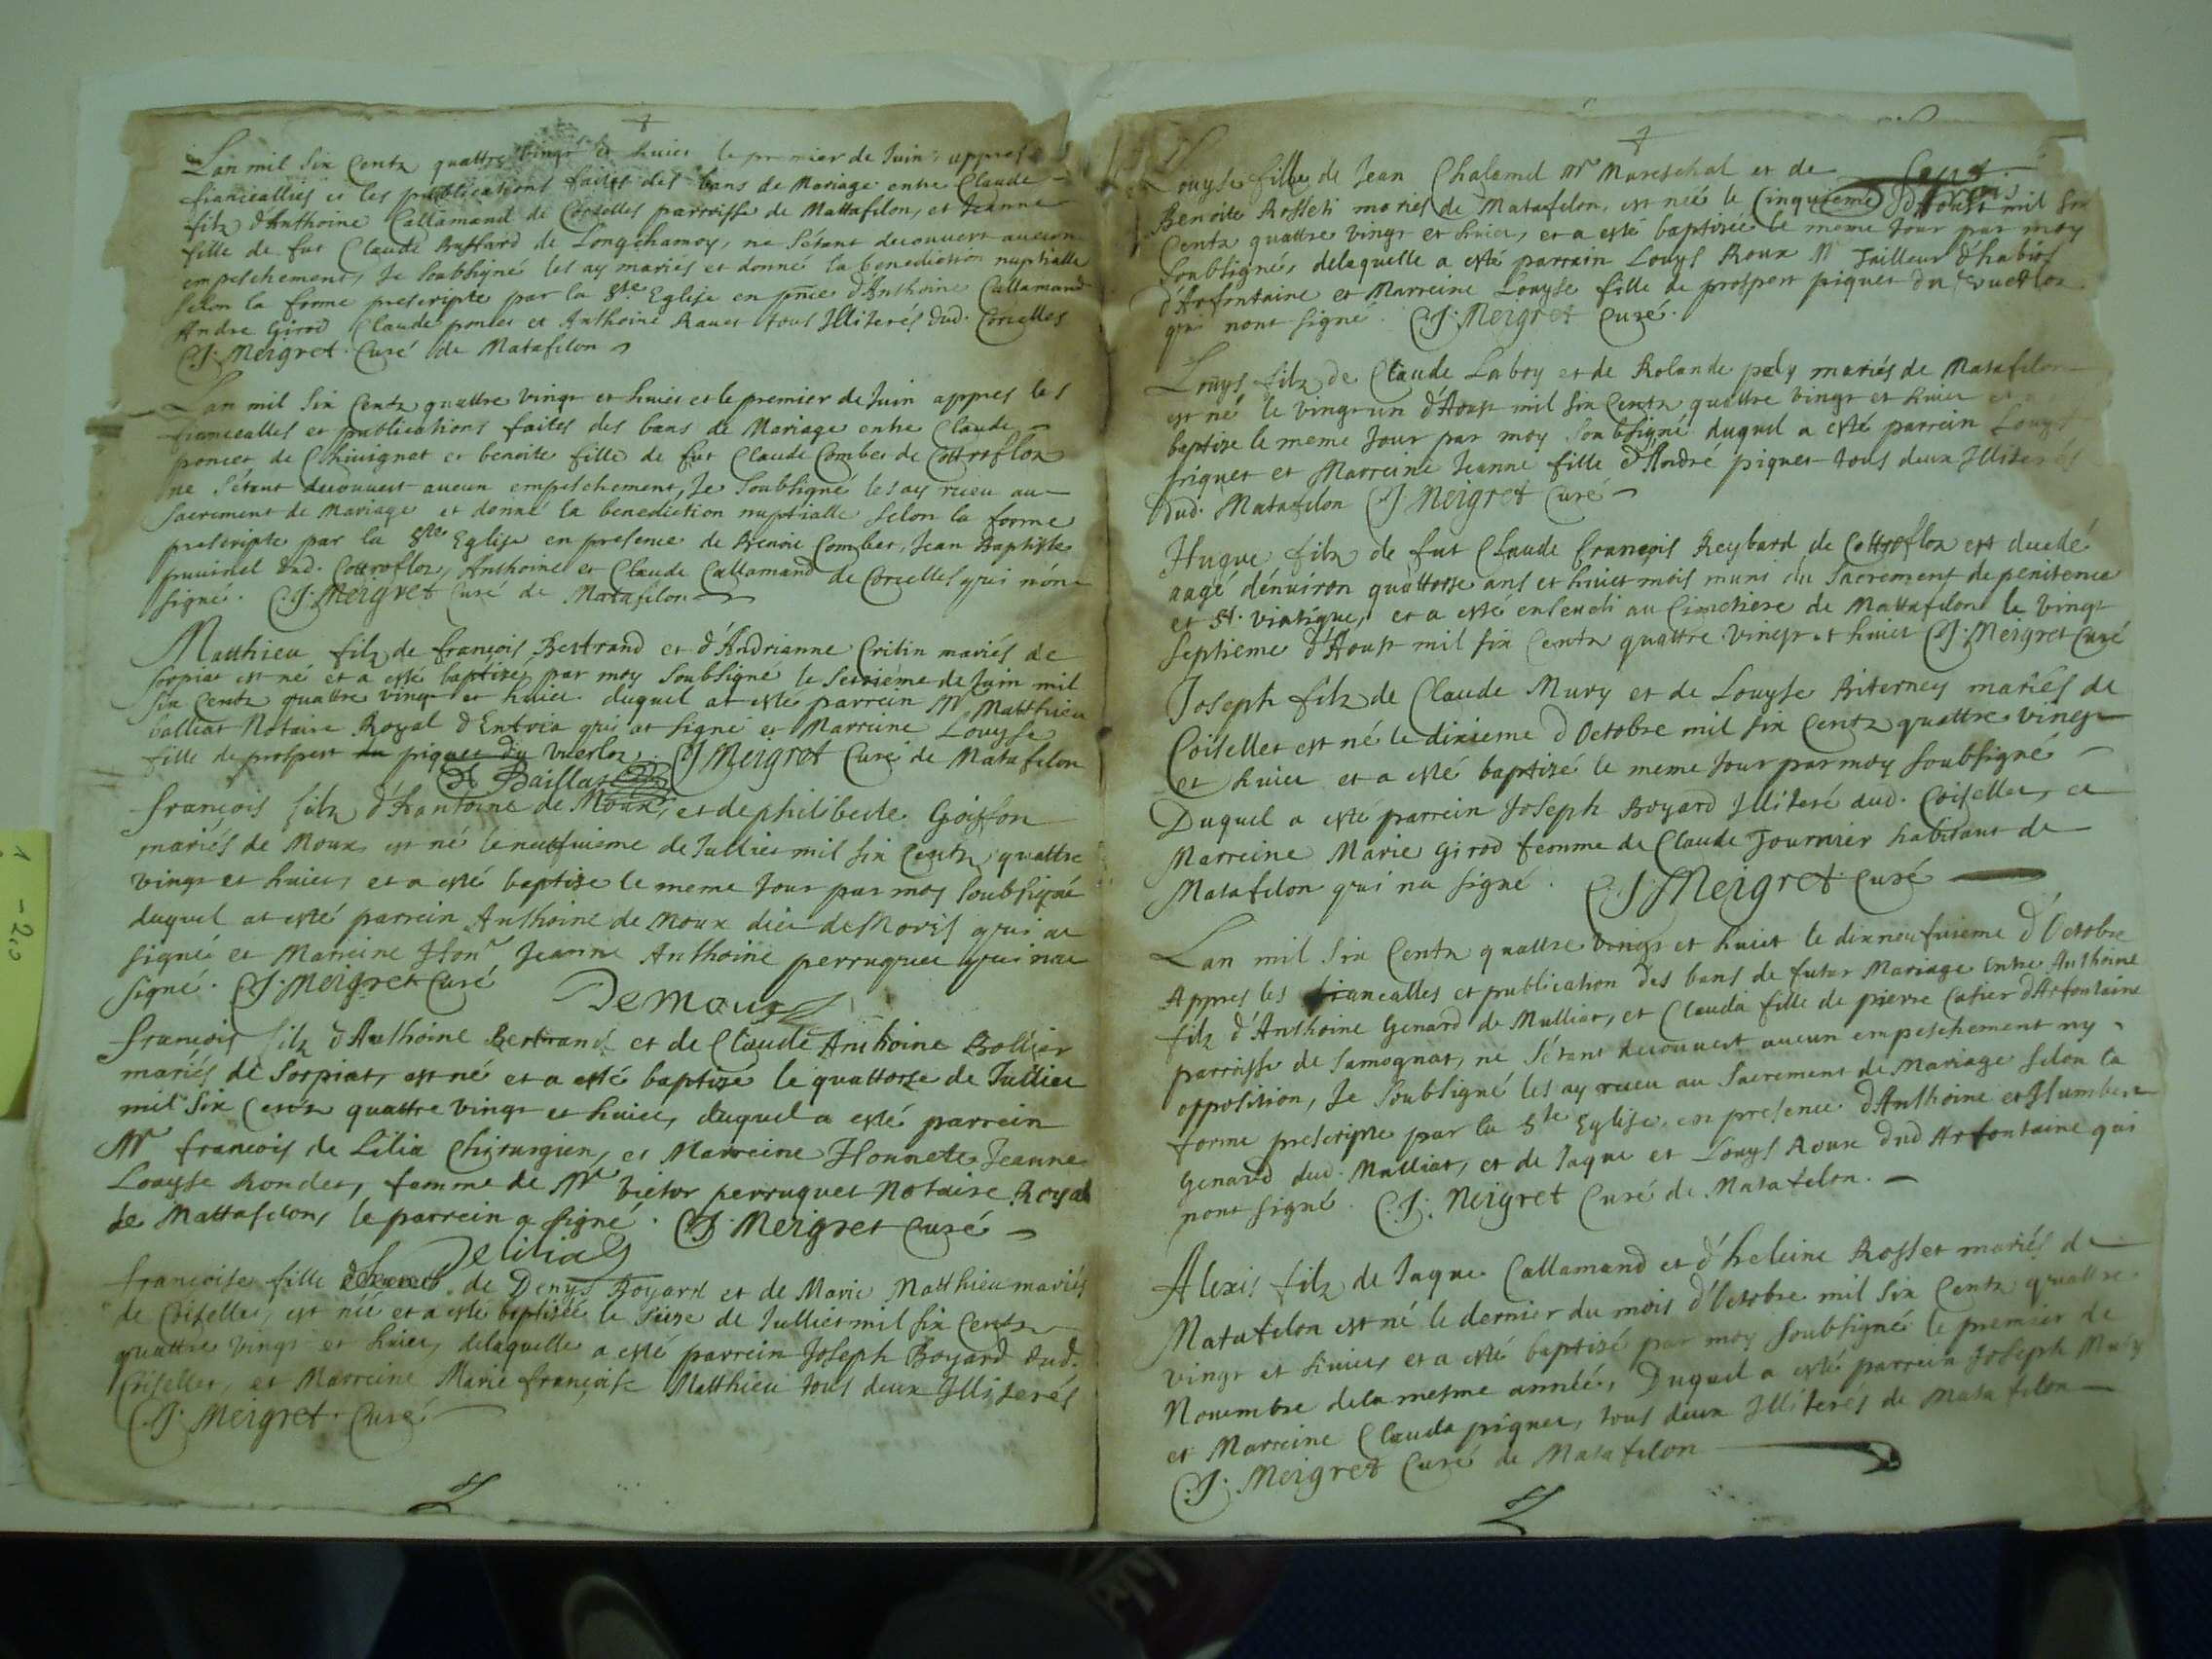 Lan mil six Centz quattre vingt et huict le premier de Juin appres
fiancealles et les publications faites des bans de Mariage entre Claude
filz d'Anthoine Callamand de Corcelles parroisse de Mattafelon, et Jeanne
fille de fut Claude Buffard de Longchamoy, ne S'étant decouvert aucun
empeschement, Je soubsigné les ay mariés et donné la benediction nuptialle
selon la forme prescripte par la Ste Eglise en pnce d'Anthoine Callamand
Andre Girod Claude poncet et Anthoine Ravet tous Illiterés dud. Corcelles
C. J. Meigret Curé de Matafelon
Lan mil six Centz quattre vingt et huict et le premier de Juin appres les
fiancealles et publications faites des bans de Mariage entre Claude
poncet de Chivignat et benoite fille de fut Claude Combet de Cottrofloz
ne S'étant decouvert aucun empeschement, Je soubsigné les ay receu au
Sacrement de Mariage et donné la benediction nuptialle selon la forme
prescripte par la Ste Eglise en presence de Benoit Combet, Jean Baptiste
dud. Cottrofloz, Anthoine et Claude Callamand de Corcelles qui n'ont
signé. C. J. Meigret Curé de Matafelon
Matthieu filz de françois Bertrand et d'Andrianne Critin mariés de
sorpiat est né et a esté baptizé par moy soubsigné le seizième de Juin mil
six Centz quattre vingt et huict duquel at esté parrein Mr Matthieu
balliat Notaire Royal d'Entrea qui at signé et Marreine Louyse
fille de prospert piquet du
Baillat C. J. Meigret Curé de Matafelon
françois filz d'hantoine de Moux, et de philiberte Goiffon
mariés de Moux est né le neufuieme de Julliet mil six Centz quattre
vingt et huict, et a esté baptize le meme Jour par moy soubsigné
duquel at esté parrein Anthoine de Moux dict de Moris qui at
signé et Marreine Honr Jeanne Anthoine perruquet qui nat
signé. C. J. Meigret Curé
Demoux
françois filz d'Anthoine Bertrand et de Claude Anthoine Bollier
mariés de Sorpiat, est né et a esté baptizé le quattorze de Julliet
mil six Centz quattre vingt et huict, duquel a esté parrein
Mr francois de Lilia Chirurgien, et Marreine Honnete Jeanne
Louyse Rondet, femme de Mr Victor perruquet Notaire Royal
de Mattafelon, le parrein a signé. C. J. Meigret Curé
Delilia
françoise fille de Denys Boyard et de Marie Matthieu mariés
de Coiselles, est née et a esté baptizée le seize de Julliet mil six Centz
quattre vingt et huict, delaquelle a esté parrein Joseph Boyard dud.
Coiselles, et Marreine Marie françoise Matthieu tous deux Illiterés
C. J. Meigret Curé
Louyse fille de Jean Chalamel Mr Mareschal et de
Benoite Rosset mariés de Matafelon, est née le Cinquieme d'Aoust mil six
Centz quattre vingt et huict, et a esté baptizée le meme Jour par moy
soubsigné, delaquelle a esté parrein Louys Roux Mr Tailleur d'habits
d'Arfontaine et Marreine Louyse fille de prospert piquet du
qui nont signé. C. J. Meigret Curé.
Louys filz de Claude Laboy et de Rolande pely mariés de Matafelon
est né le vingt un d'Aoust mil six Centz quattre vingt et huict et a
baptize le meme Jour par moy soubsigné duquel a esté parrein Louys
piquet et Marreine Jeanne fille d'André piquet tous deux Illiterés
dud. Matafelon C. J. Meigret Curé
Hugue filz de fut Claude françois Reybard de Cottrofloz est decedé
aagé d'environ quattorze ans et huict mois muni du Sacrement de penitence
et St. viatique, et a esté enseveli au Cimetiere de Mattafelon le vingt
septieme d'Aoust mil six Centz quattre vingt et huict C. J. Meigret Curé
Joseph filz de Claude Mury et de Louyse Biterney mariés de
Coiselles est né le dixieme d'Octobre mil six Centz quattre vingt
et huict et a esté baptizé le meme Jour par moy soubsigné
Duquel a esté parrein Joseph Boyard Illiteré dud. Coiselles, et
Marreine Marie Girod femme de Claude Fournier habitant de
Matafelon qui na signé. C. J. Meigret Curé
Lan mil six Centz quattre vingt et huict le dixneufuieme d'Octobre
Appres les fiancealles et publication des bans de futur Mariage Entre Anthoine
filz d'Anthoine Genard de Mulliat, et Clauda fille de pierre Catier d'Arfontaine
parroisse de Samognat, ne S'étant decouvert aucun empeschement ny
opposition, Je soubsigné les ay receu au Sacrement de Mariage selon la
forme prescripte par la Ste Eglise, en presence d'Anthoine et Humbert
Genard dud. Mulliat, et de Jaque et Louys Roux dud Arfontaine qui
nont signé. C. J. Meigret Curé de Matafelon.
Alexis filz de Jaque Callamand et d'heleine Rosset mariés de
Matafelon est né le dernier du mois d'Octobre mil six Centz quattre
vingt et huict, et a esté baptizé par moy soubsigné le premier de
Novembre de la mesme année, Duquel a esté parrein Joseph Mury
et Marreine Clauda piquet, tous deux Illiterés de Matafelon
C. J. Meigret Curé de Matafelon